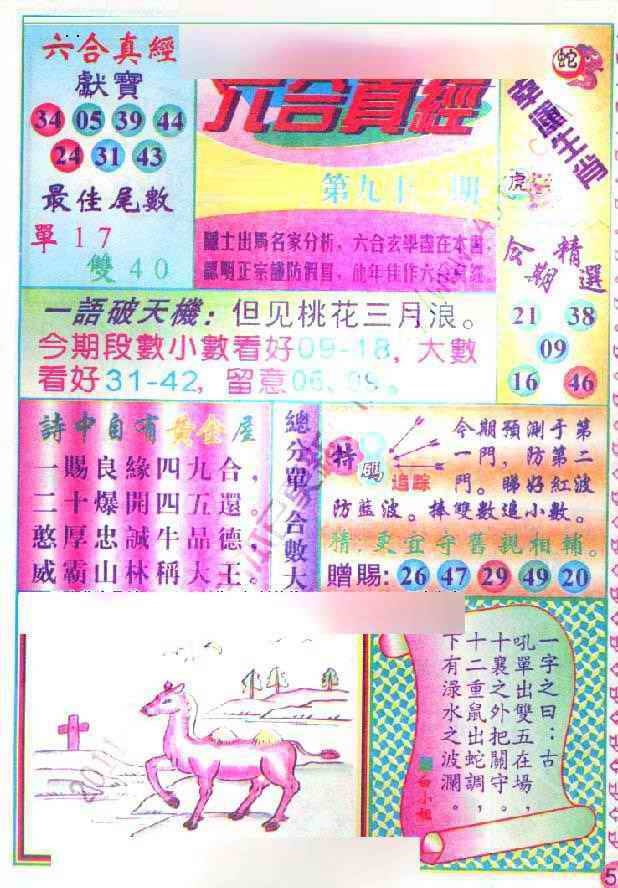 六合真經
獻寶
34 05 39 44
24 31 43
最佳尾數
單 1 7
雙 4 0
六合真經
第九十一期
隱士出馬名家分析，六合玄學盡在本書，
認明正宗謹防假冒，他年佳作六合真經。
蛇
幸運生肖
虎
今期精選
21 38
09
16 46
一語破天機：但见桃花三月浪。
今期段數小數看好09-18，大數
看好31-42，留意06、09。
詩中自有黃金屋
一賜良緣四九合，
二十爆開四五還。
憨厚忠誠牛品德，
威霸山林稱大王。
總分單 合數大
特碼
追踪
今期預測于第
一門，防第二
門。睇好紅波
防藍波。捧雙數追小數。
精：更宜守舊親相輔。
贈賜：26 47 29 49 20
一字之曰：古
吼單出雙五在場，
十襄之外把關守。
十二重鼠出蛇調，
下有渌水之波瀾。
白小姐
5